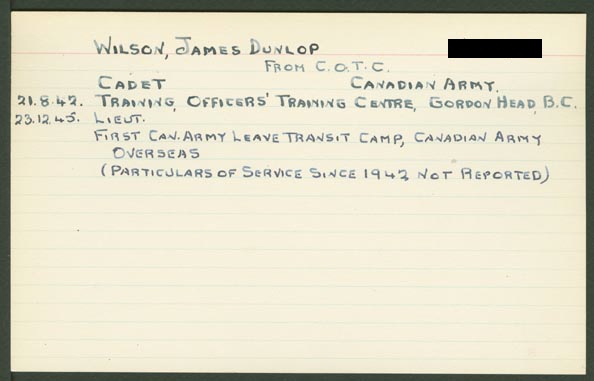 WILSON, JAMES DUNLOP
FROM C.O.T.C.
CADET CANADIAN ARMY.
21.8.42. TRAINING, OFFICERS' TRAINING CENTRE, GORDON HEAD, B.C.
23.12.45. LIEUT.
FIRST CAN. ARMY LEAVE TRANSIT CAMP, CANADIAN ARMY
OVERSEAS
(PARTICULARS OF SERVICE SINCE 1942 NOT REPORTED)